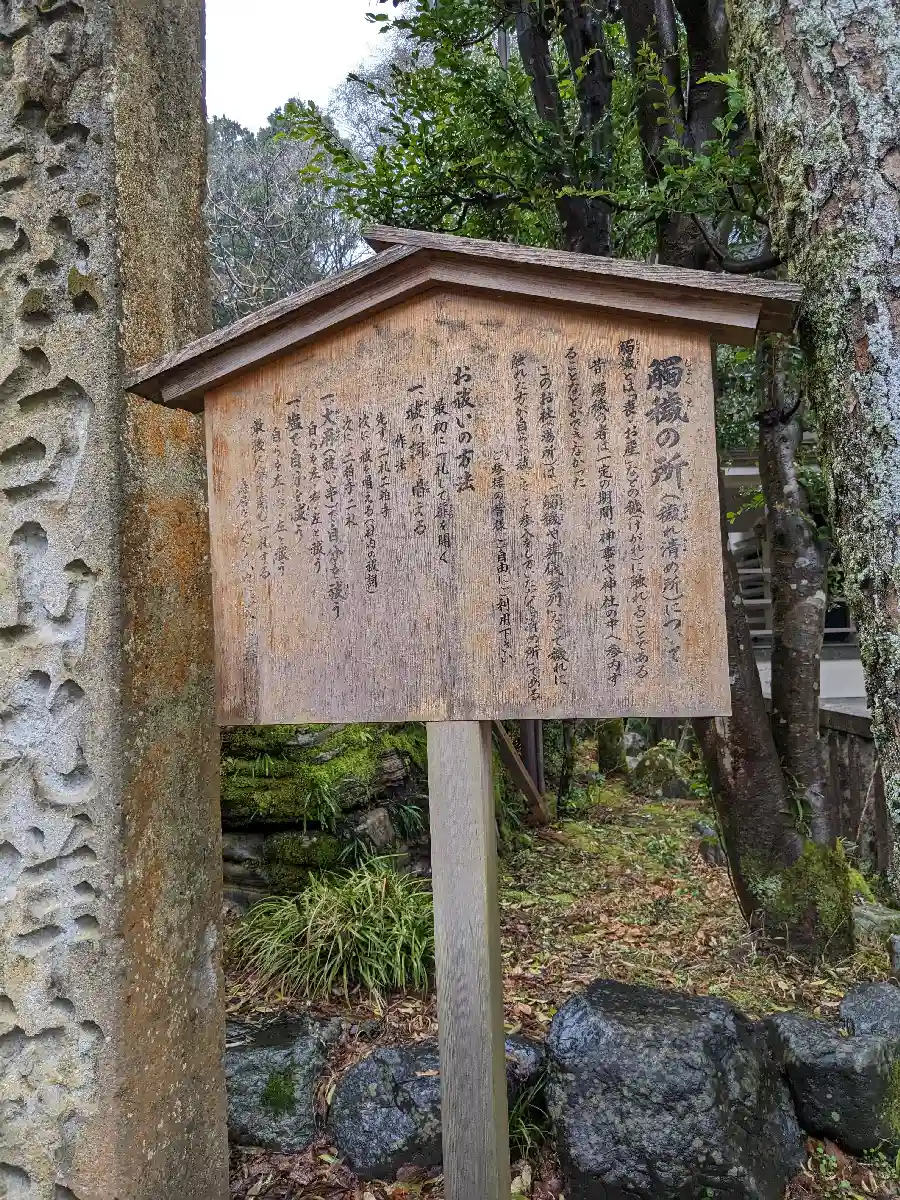 觸穢の所(穢れ清め所)について
觸穢とは「喪」「お産」などの穢(けがれ)に触れることである
昔 觸穢の者は一定の期間、神事や神社の中へ参内す
ることなどができなかった
このお社の場所は、觸穢や葬儀参列などで穢れに
触れた方が自らお祓いをして参入をしていただく清め所である
ご参拝の皆様、ご自由にご利用下さい
お祓いの方法
最初に一礼して扉を開く
一 祓の詞を唱える
作法
先ず 二礼二拍手
次に 祓を唱える
次に 二拍手 二礼
一 大麻(祓い串)で自分を祓う
自らを左、右、左と祓う
一 塩で自分を祓う
自らを左、右、左と祓う
最後に 扉を閉め 一礼する